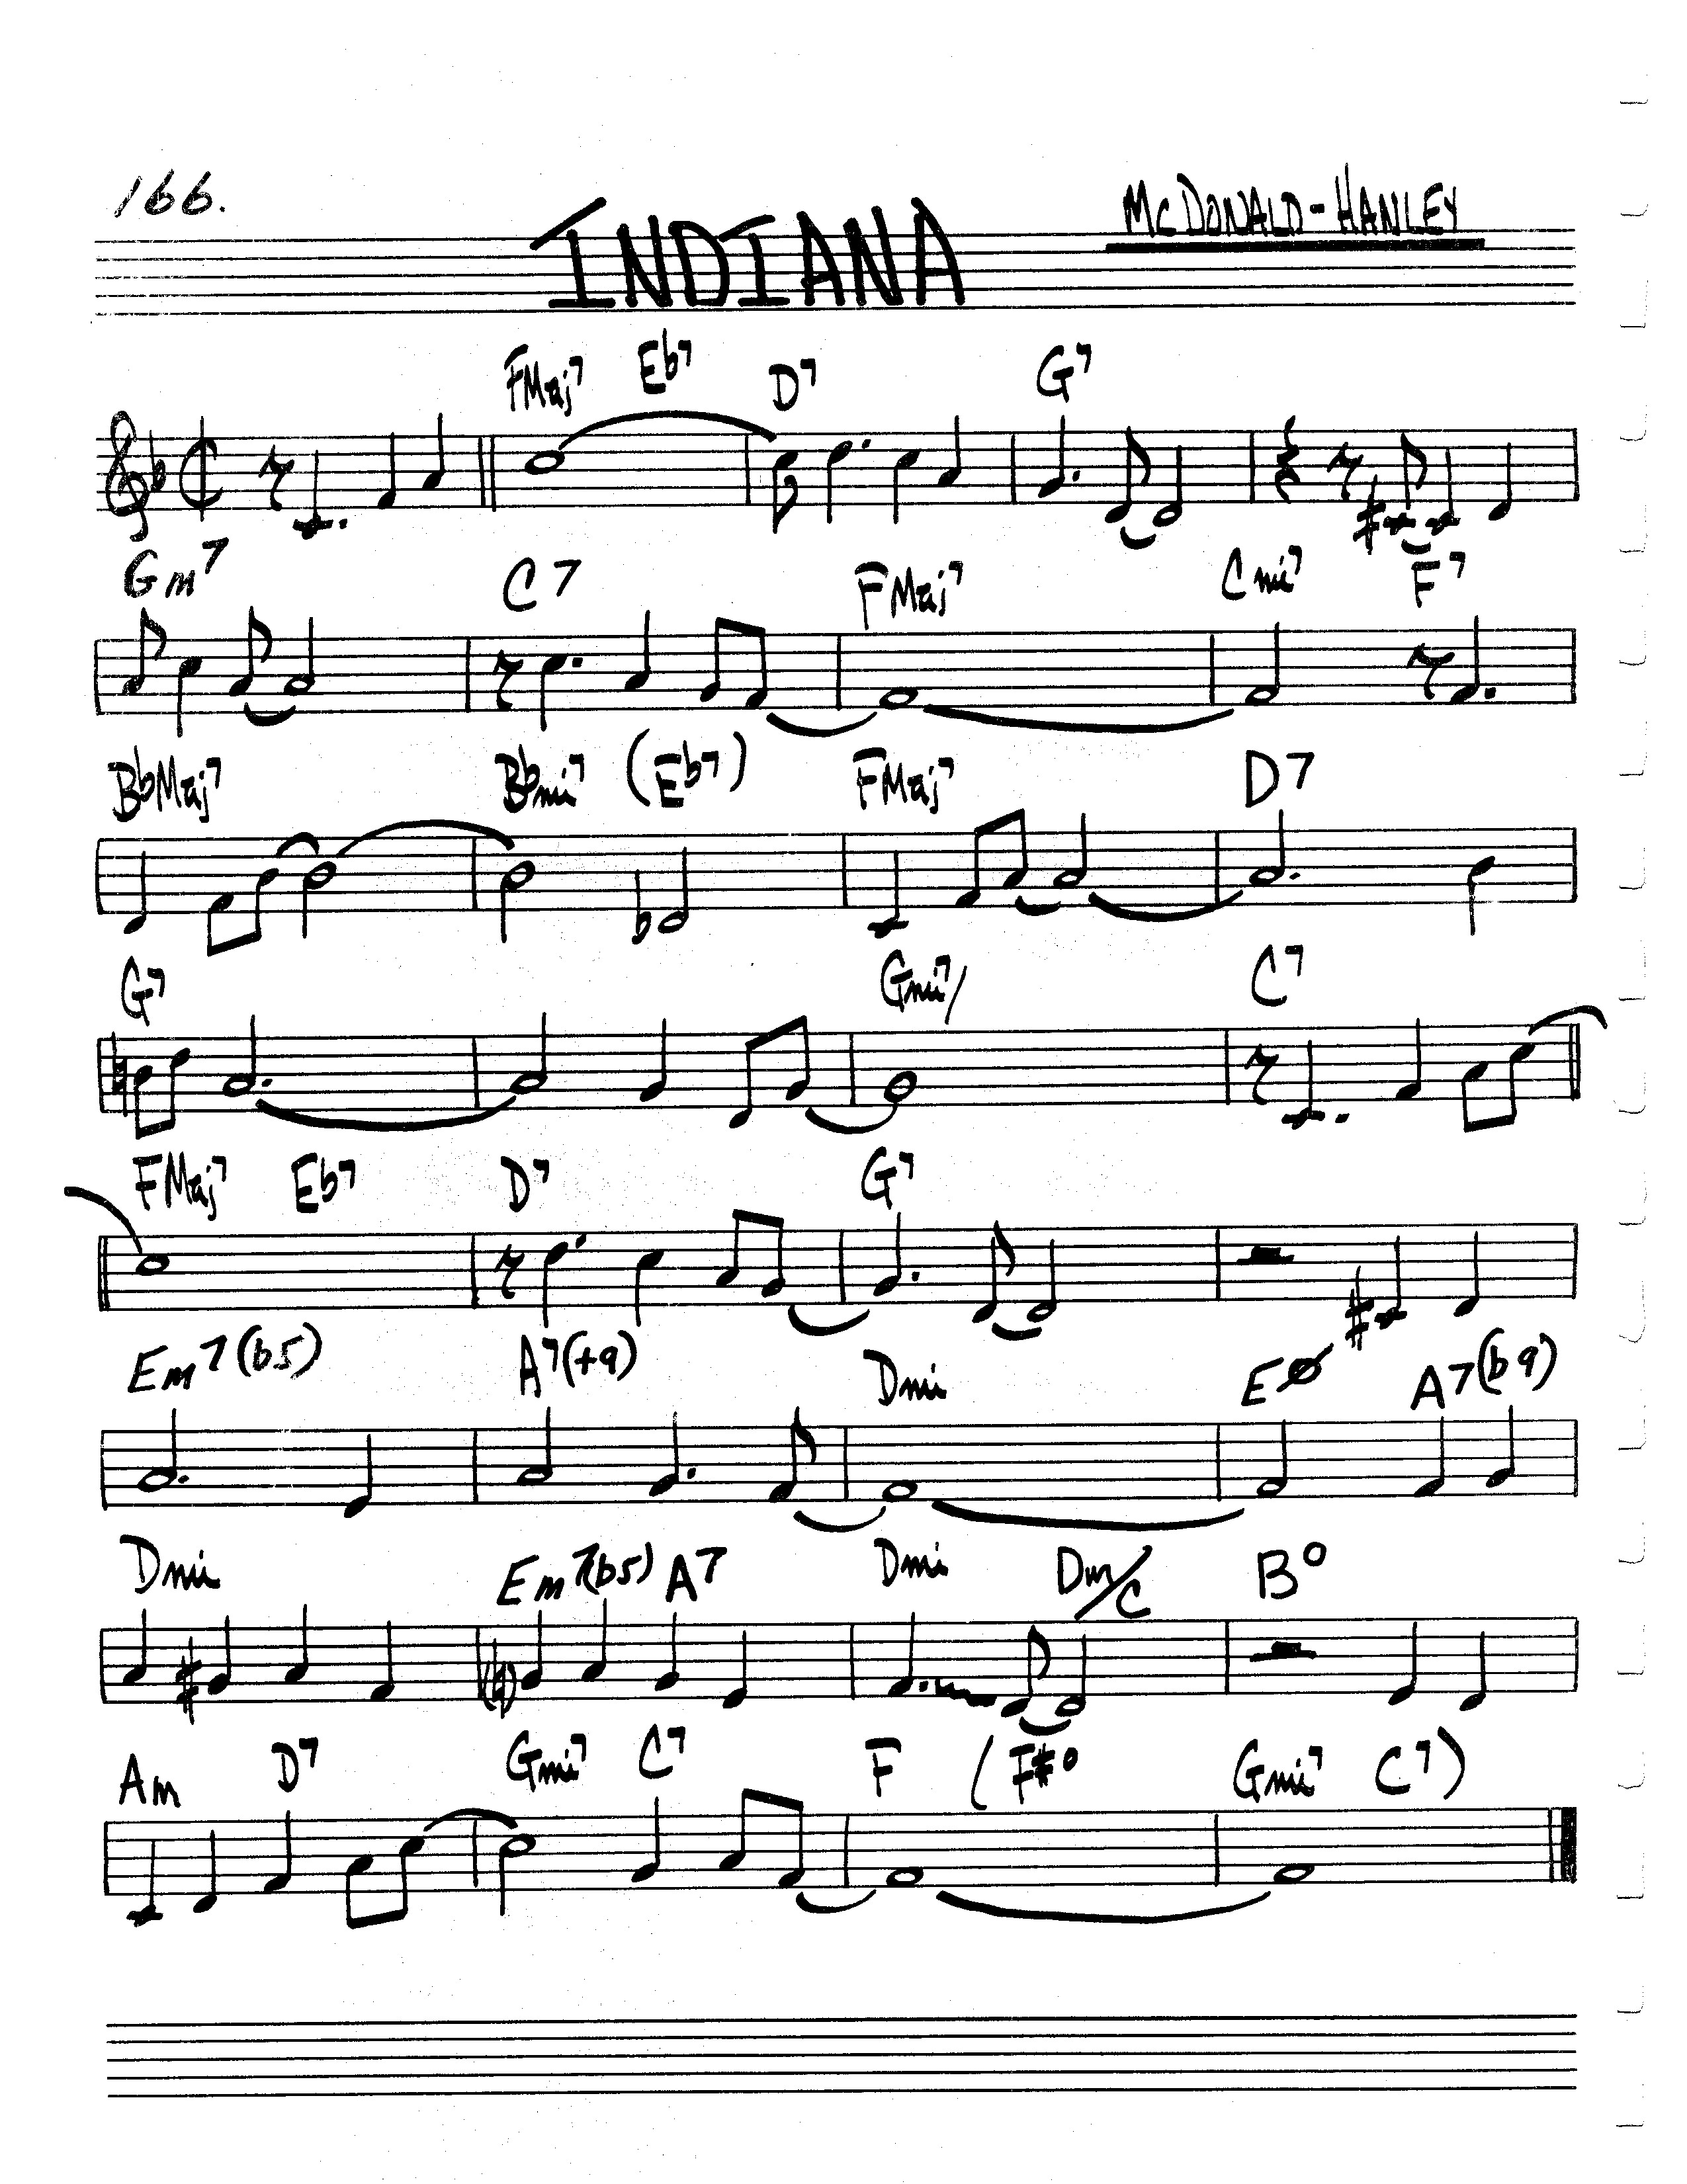 166.
INDIANA
McDONALD-HANLEY
FMaj7 Eb7 D7 G7
Gm7 C7 FMaj7 Cmi7 F7
BbMaj7 Bbmi7 (Eb7) FMaj7 D7
G7 Gmi7/ C7
FMaj7 Eb7 D7 G7
Em7(b5) A7(+9) Dmi EØ A7(b9)
Dmi Em7(b5) A7 Dmi Dm/C Bo
Am D7 Gmi7 C7 F (F#o Gmi7 C7)